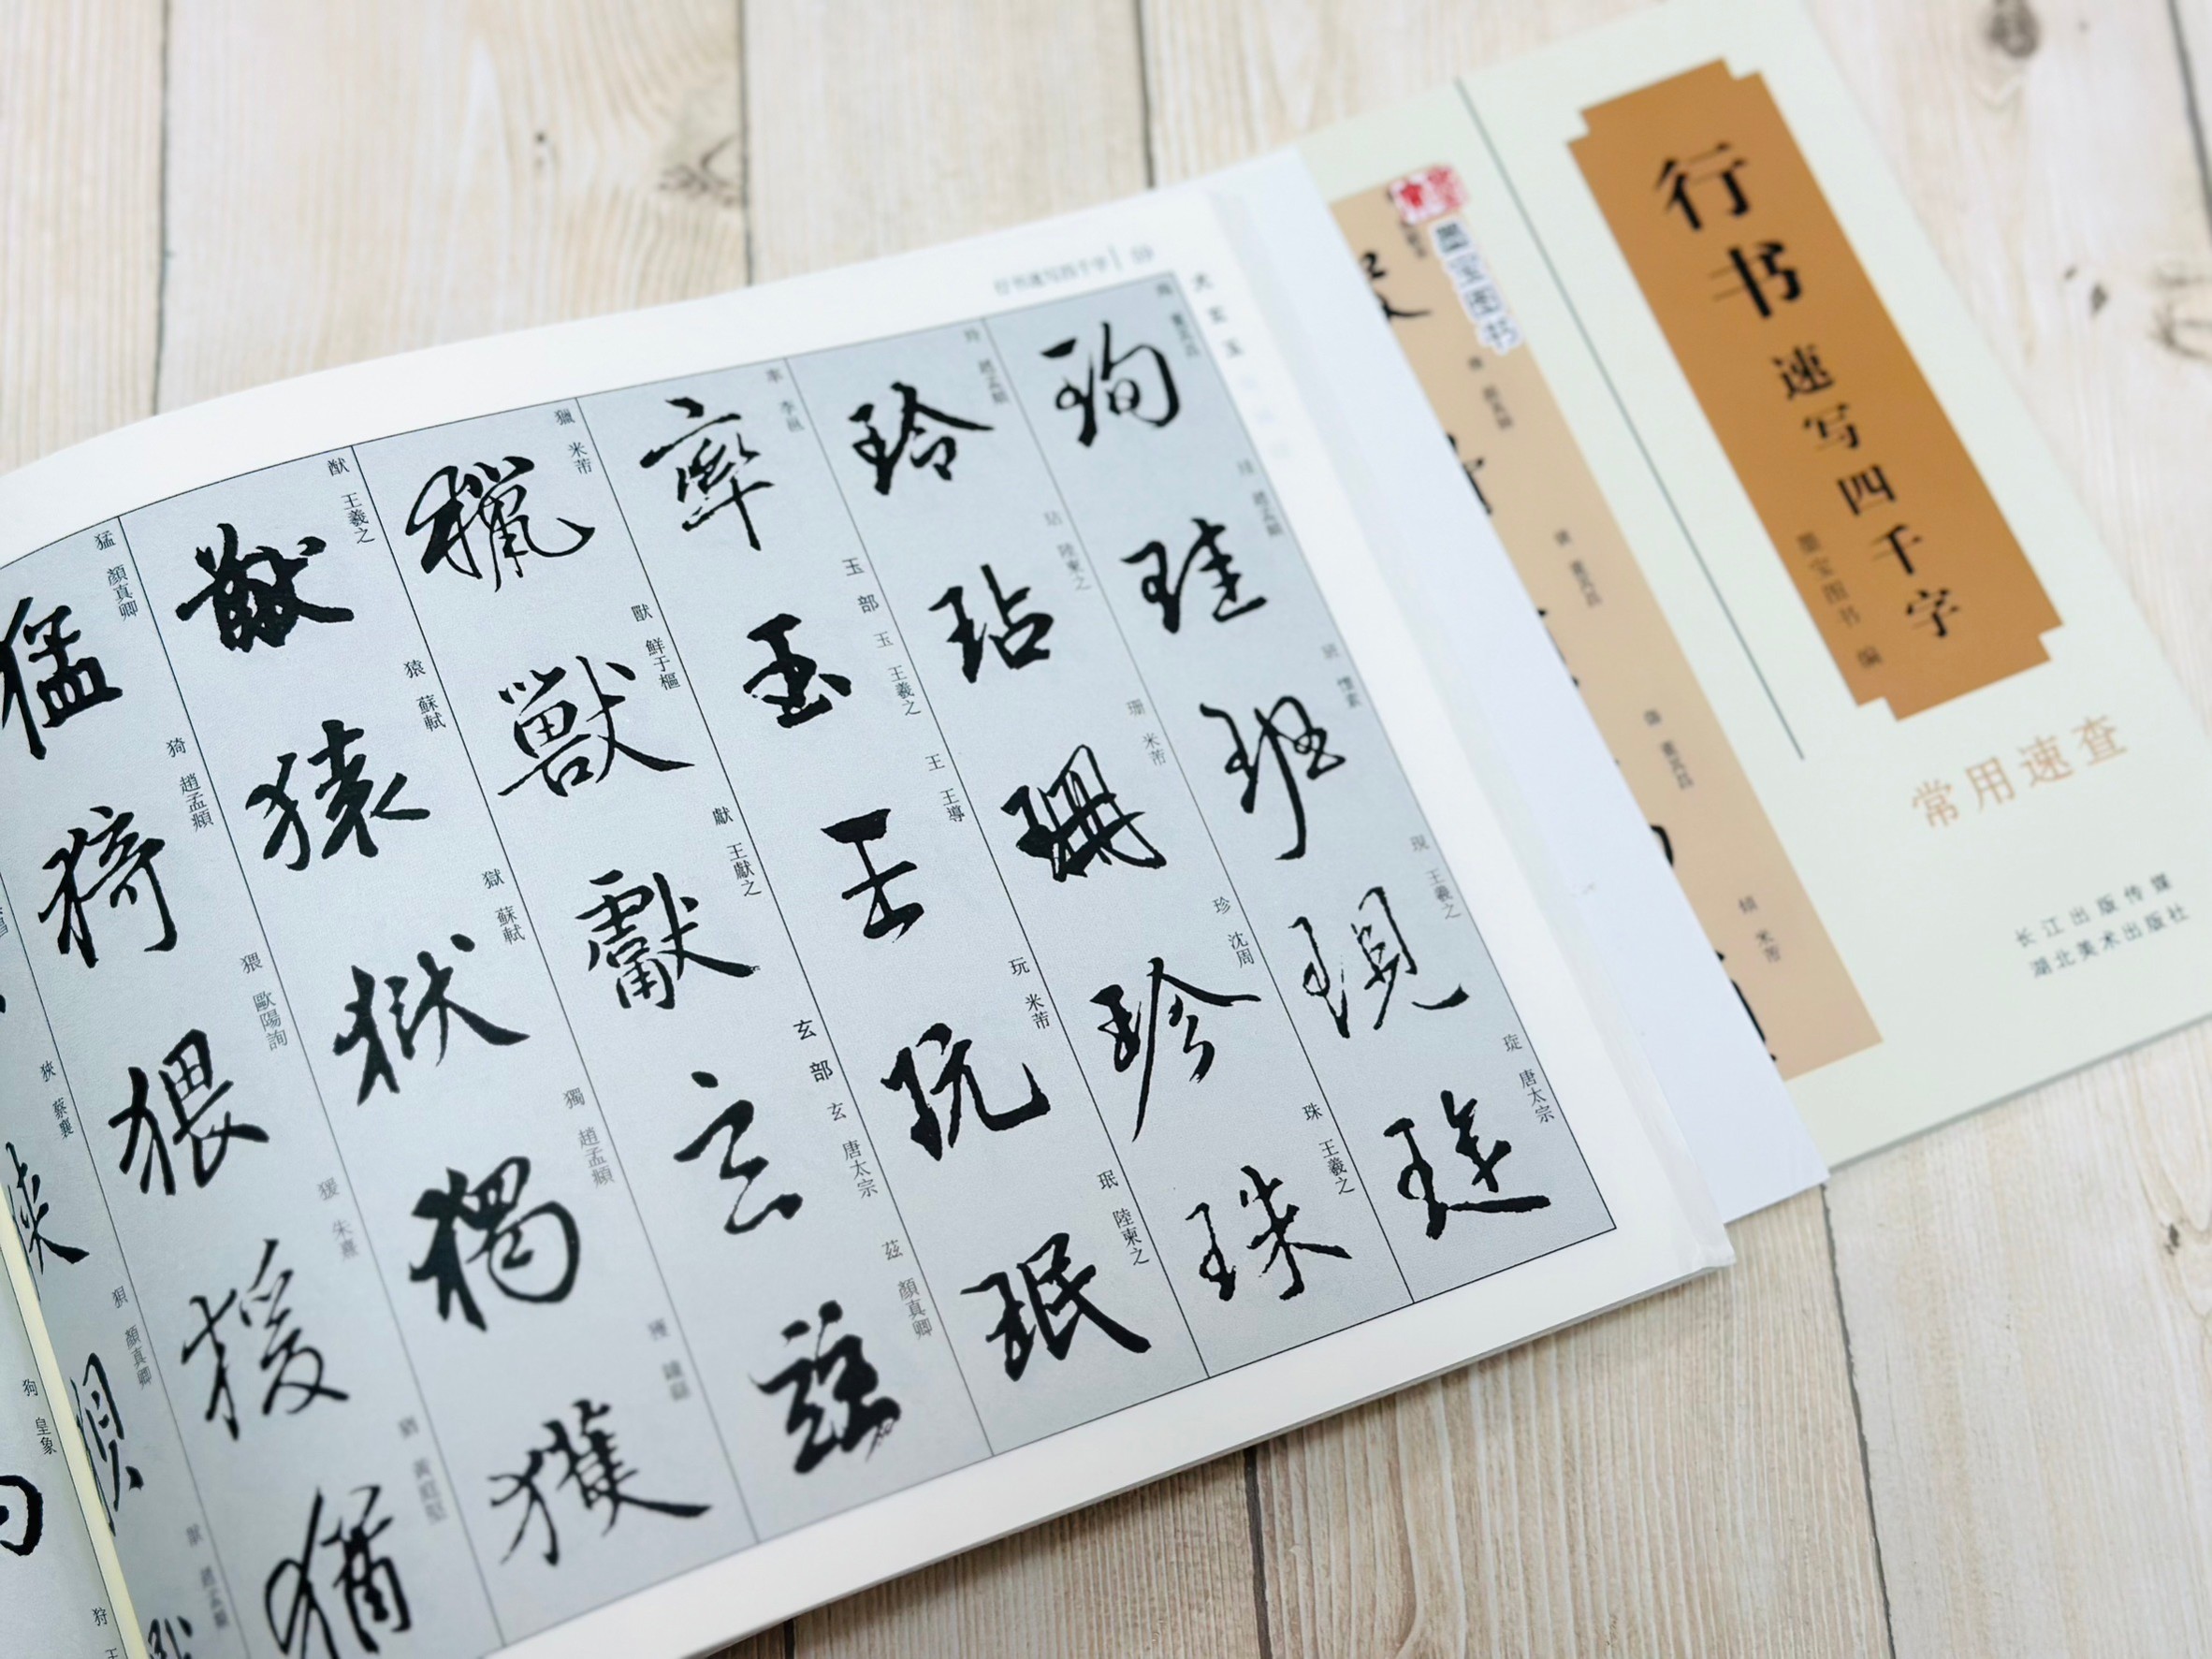 行书速写四千字
墨宝图书 编
常用速查
长江出版传媒
湖北美术出版社
墨宝图书
行书速写四千字 59
犬玄玉
猛 顏真卿
猗 趙孟頫
猥 歐陽詢
猨 朱熹
猶 黃庭堅
猷 王羲之
猿 蘇軾
獄 蘇軾
獨 趙孟頫
獲
獵 米芾
獸 鮮于樞
獻 王獻之
玄部 玄 唐太宗
茲 顏真卿
率 李邕
玉部 玉 王羲之
王 王導
玩 米芾
珉 陸柬之
玲 趙孟頫
玷 陸柬之
珊 米芾
珍 沈周
珠 王羲之
珣 董其昌
珪 趙孟頫
班 懷素
現 王羲之
琁 唐太宗
狹 蔡襄
狽 顏真卿
狗 皇象
狩